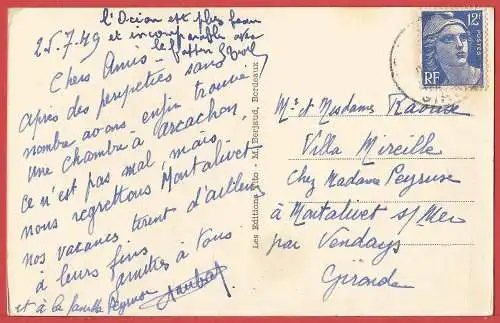 l'Océan est plus beau
et incomparable avec
le
25.7.49
Chers Amis -
Après des péripéties sans
nombre avons enfin trouvé
une chambre à Arcachon,
ce n'est pas mal, mais
nous regrettons Montalivet
nos vacances tirent d'ailleurs
à leurs fins
amitiés à tous
et à la famille Peyruse
Les Editions Vito - M. Berjaud, Bordeaux
12F
POSTES
RF
Mr et Mesdames Raoux
Villa Mireille
Chez Madame Peyruse
à Montalivet s/Mer
par Vendays
Gironde